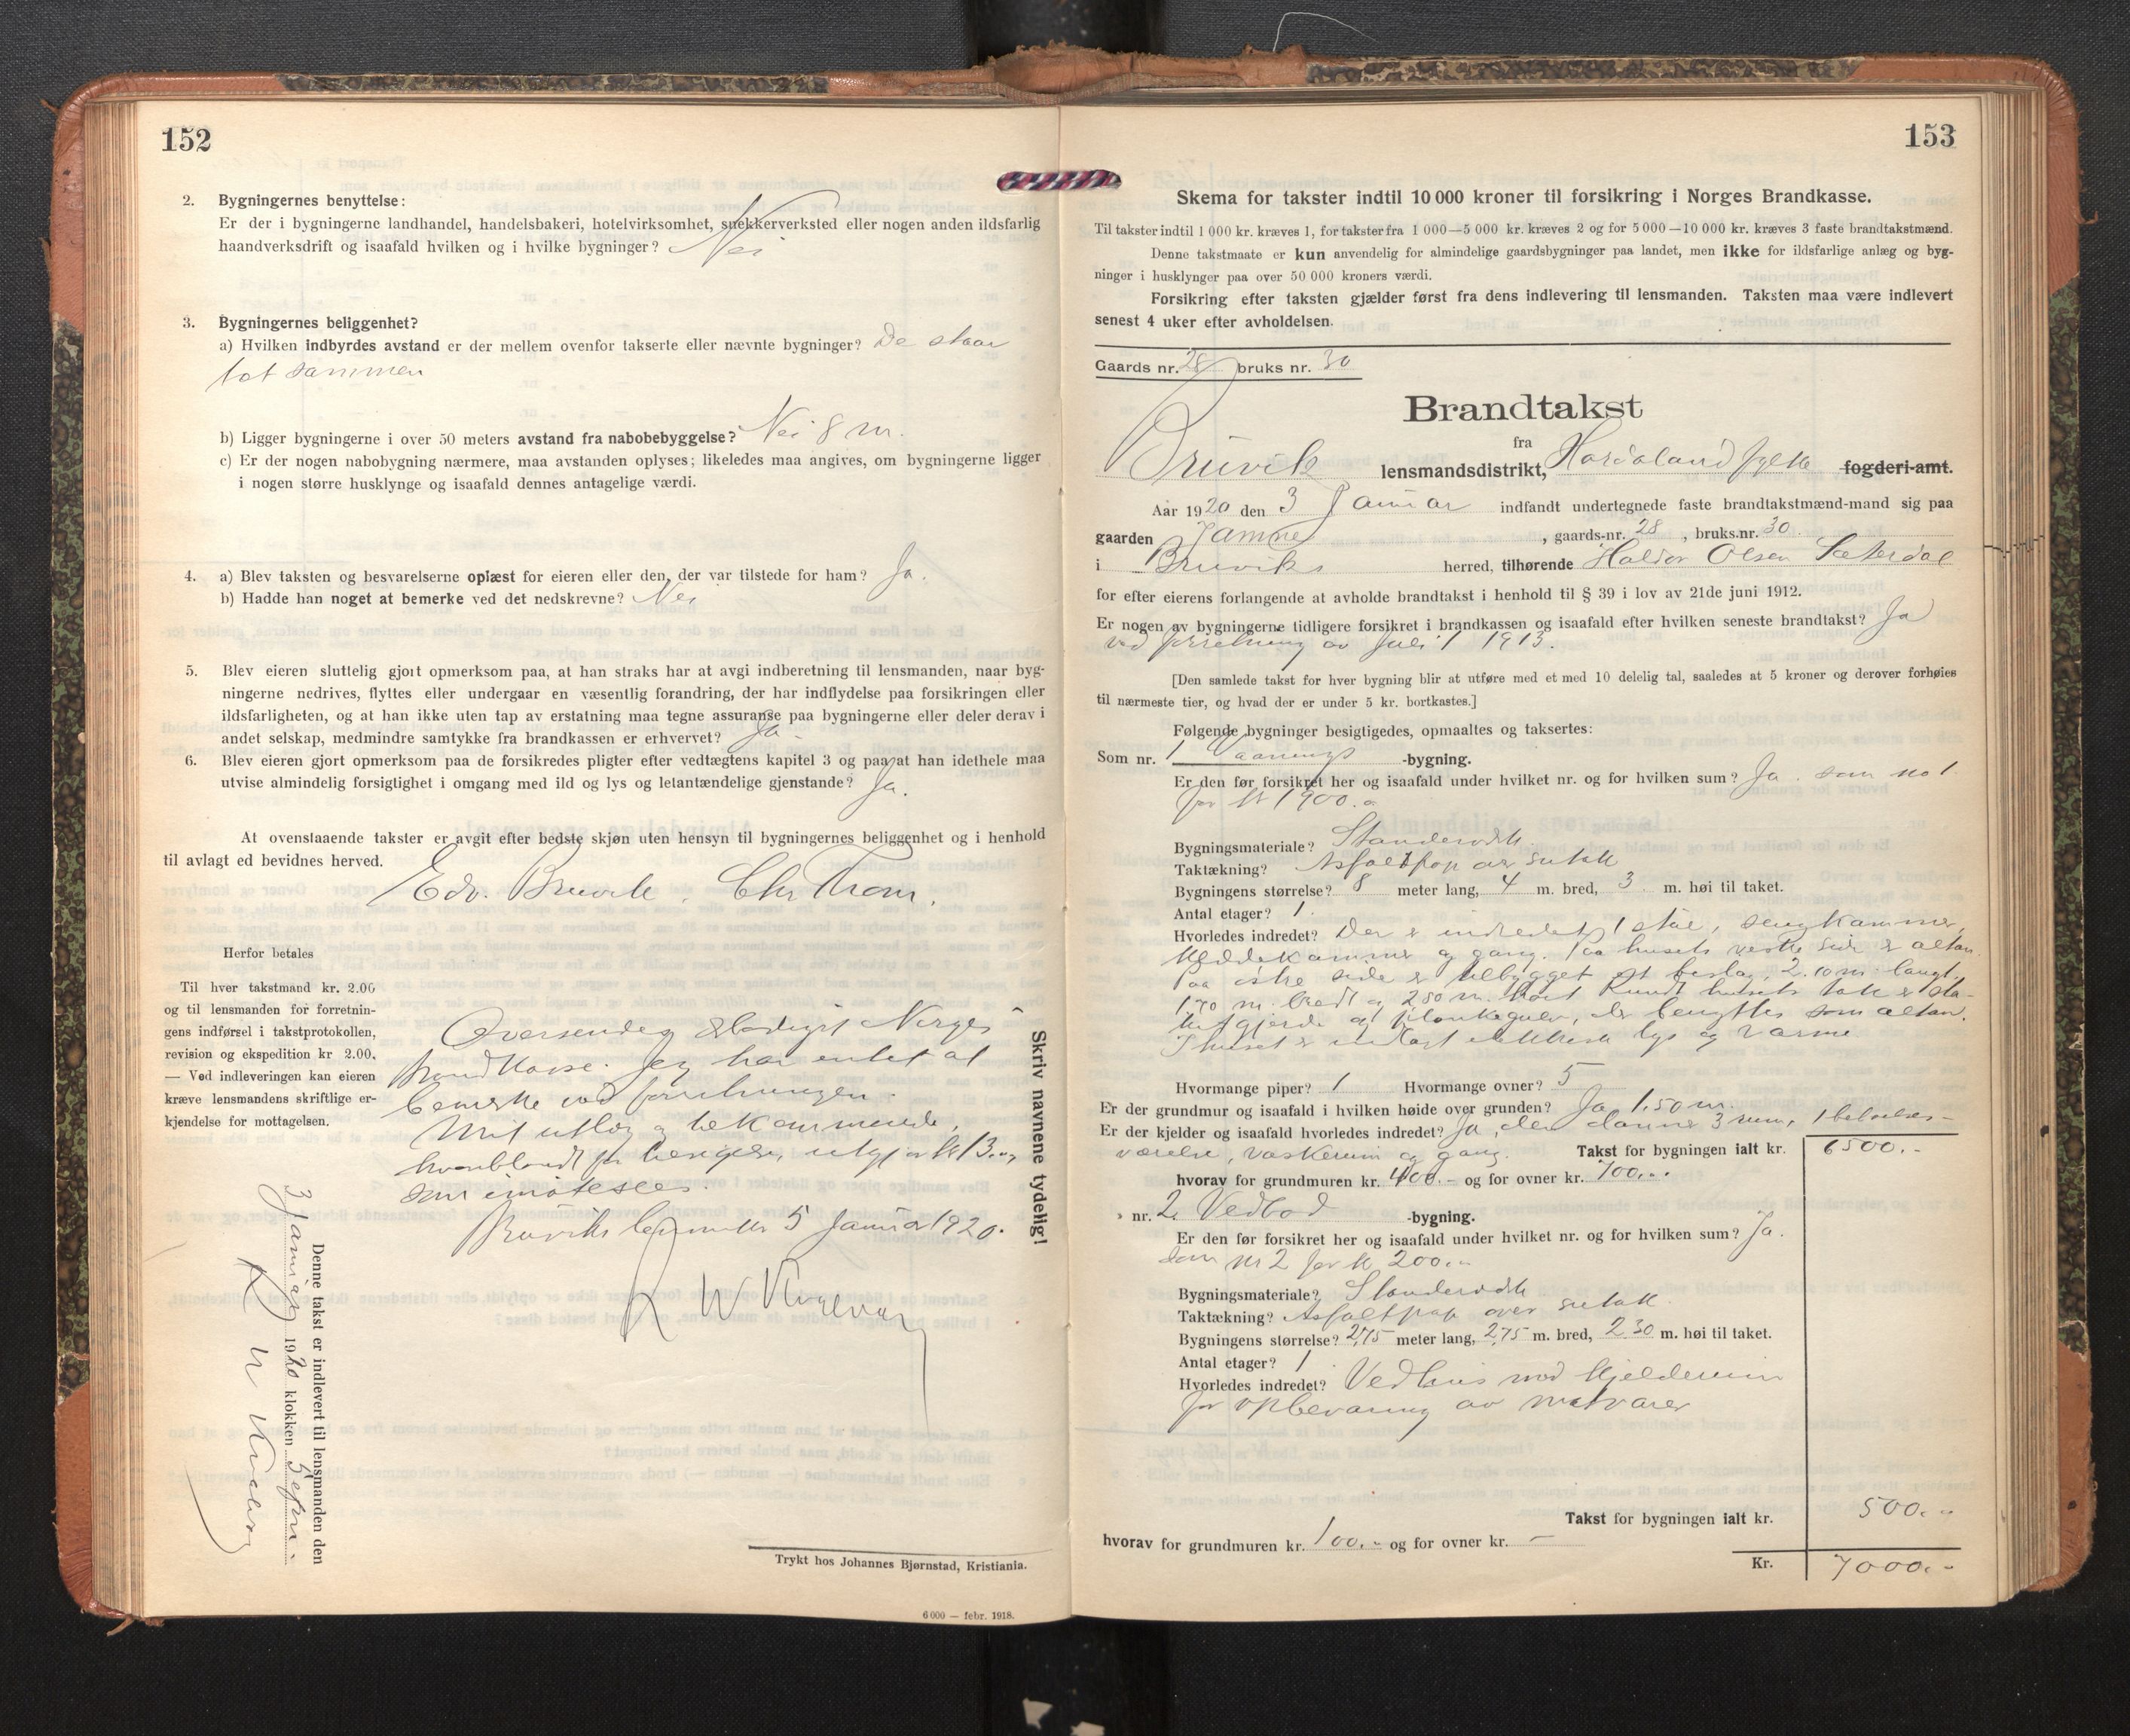 152
2. Bygningernes benyttelse:
Er der i bygningerne landhandel, handelsbakeri, hotelvirksomhet, snekkerverksted eller nogen anden ildsfarlig
haandverksdrift og isaafald hvilken og i hvilke bygninger? Nei
3. Bygningernes beliggenhet?
a) Hvilken indbyrdes avstand er der mellem ovenfor takserte eller nævnte bygninger? De staar
tæt sammen
b) Ligger bygningerne i over 50 meters avstand fra nabobebyggelse? Nei 8 m.
c) Er der nogen nabobygning nærmere, maa avstanden oplyses; likeledes maa angives, om bygningerne ligger
i nogen større husklynge og isaafald dennes antagelige værdi.
4. a) Blev taksten og besvarelserne oplæst for eieren eller den, der var tilstede for ham? Ja.
b) Hadde han noget at bemerke ved det nedskrevne? Nei
5. Blev eieren sluttelig gjort opmerksom paa, at han straks har at avgi indberetning til lensmanden, naar byg-
ningerne nedrives, flyttes eller undergaar en væsentlig forandring, der har indflydelse paa forsikringen eller
ildsfarligheten, og at han ikke uten tap av erstatning maa tegne assuranse paa bygningerne eller deler derav i
andet selskap, medmindre samtykke fra brandkassen er erhvervet? Ja
6. Blev eieren gjort opmerksom paa de forsikredes pligter efter vedtægtens kapitel 3 og paa at han idethele maa
utvise almindelig forsigtighet i omgang med ild og lys og letantændelige gjenstande? Ja.
At ovenstaaende takster er avgit efter bedste skjøn uten hensyn til bygningernes beliggenhet og i henhold
til avlagt ed bevidnes herved.
Edv. Bruvik. Chr Tran.
Herfor betales
Til hver takstmand kr. 2.00
og til lensmanden for forretnin-
gens indførsel i takstprotokollen,
revision og ekspedition kr 2.00.
— Ved indleveringen kan eieren
kræve lensmandens skriftlige er-
kjendelse for mottagelsen.
Oversendes ærbødigst Norges
Brandkasse. Jeg har intet at
bemerke ved forretningen.
Mit utlæg tilkommende,
hvoriblandt for utgjør kr 13.00,
som imøtesees.
Bruviks 5 Januar 1920.
K W
Skriv navnene tydelig!
Denne takst er indlevert til lensmanden den
3 Januar 1920 klokken 5 efm.
K W
Trykt hos Johannes Bjørnstad, Kristiania.
6 000 — febr. 1918.
153
Skema for takster indtil 10 000 kroner til forsikring i Norges Brandkasse.
Til takster indtil 1 000 kr. kræves 1, for takster fra 1 000—5 000 kr. kræves 2 og for 5 000—10 000 kr. kræves 3 faste brandtakstmænd.
Denne takstmaate er kun anvendelig for almindelige gaardsbygninger paa landet, men ikke for ildsfarlige anlæg og byg-
ninger i husklynger paa over 50 000 kroners værdi.
Forsikring efter taksten gjælder først fra dens indlevering til lensmanden. Taksten maa være indlevert
senest 4 uker efter avholdelsen.
Gaards nr. 28 bruks nr. 30
Brandtakst
fra
Bruvik lensmandsdistrikt, Hordaland fylke fogderi-amt.
Aar 1920 den 3 Januar indfandt undertegnede faste brandtakstmænd-mand sig paa
gaarden Jamne, gaards-nr. 28, bruks.nr. 30
i Bruviks herred, tilhørende Haldor Olsen Sæterdal
for efter eierens forlangende at avholde brandtakst i henhold til § 39 i lov av 21de juni 1912.
Er nogen av bygningerne tidligere forsikret i brandkassen og isaafald efter hvilken seneste brandtakst? Ja
ved forretning av juli 1 1913.
[Den samlede takst for hver bygning blir at utføre med et med 10 delelig tal, saaledes at 5 kroner og derover forhøies
til nærmeste tier, og hvad der er under 5 kr. bortkastes.]
Følgende bygninger besigtigedes, opmaaltes og taksertes:
Som nr. 1 Vaanings -bygning.
Er den før forsikret her og isaafald under hvilket nr. og for hvilken sum? Ja. som no 1
for kr 1900.-
Bygningsmateriale? Standerverk
Taktækning? Asfaltpap over sutak
Bygningens størrelse? 8 meter lang, 4 m. bred, 3 m. høi til taket.
Antal etager? 1.
Hvorledes indredet? Der er indredet 1 stue, sengkammer,
klædekammer og gang. Paa husets vestre side er altan.
Paa østre side er tilbygget et bislag, 2.10 m. langt,
1.70 m. bredt og 2.50 m. høit Rundt husets tak er sta-
kitgjerde og plankegulv, der benyttes som altan.
I huset er indlagt elektrisk lys og varme
Hvormange piper? 1 Hvormange ovner? 5
Er der grundmur og isaafald i hvilken høide over grunden? Ja 1,50 m.
Er der kjelder og isaafald hvorledes indredet? Ja, den danner 3 rum, 1 beboelses-
værelse, vaskerum og gang. Takst for bygningen ialt kr. 6500.-
hvorav for grundmuren kr. 400.- og for ovner kr. 700.-
» nr. 2. Vedbod -bygning.
Er den før forsikret her og isaafald under hvilket nr. og for hvilken sum? Ja.
som nr 2 for kr 200.-
Bygningsmateriale? Standerverk
Taktækning? Asfaltpap over sutak.
Bygningens størrelse? 2,75 meter lang, 2,75 m. bred, 2.30 m. høi til taket.
Antal etager? 1.
Hvorledes indredet? Vedhus med kjelderrum
for opbevaring av matvarer
Takst for bygningen ialt kr. 500.-
hvorav for grundmuren kr. 100.- og for ovner kr. -
Kr. 7000.-